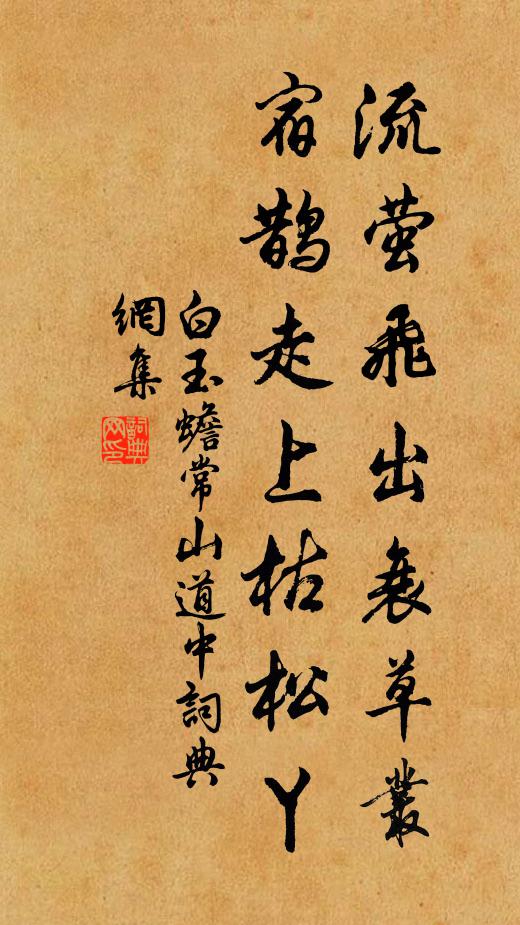 流萤飛出衰草叢
宿鵲走上枯松丫
白玉蟾常山道中詞典
網集
詞典网印